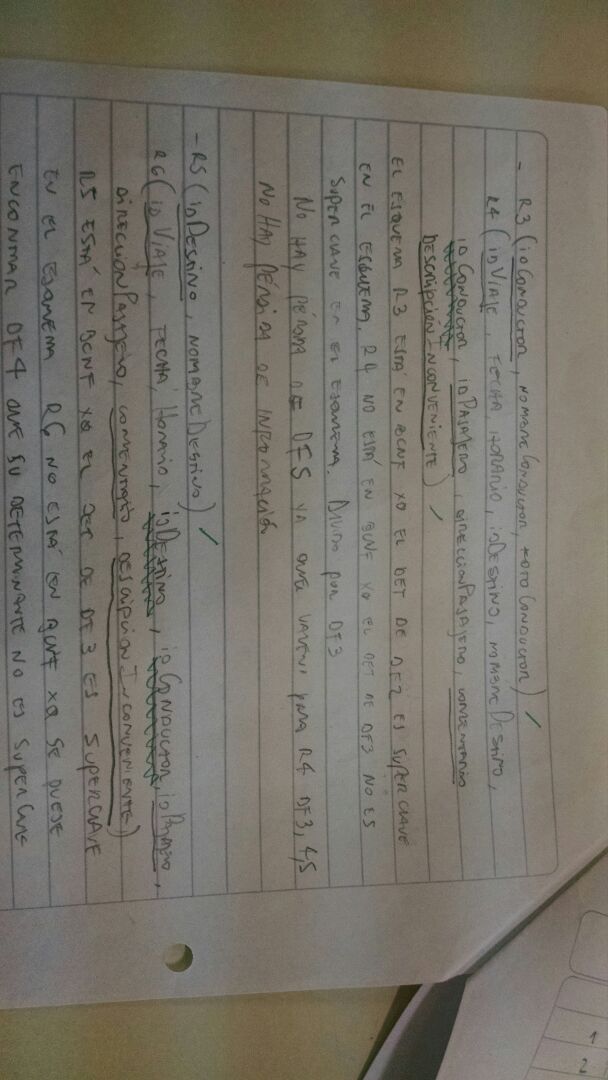 - R3 (idConductor, nombreConductor, fotoConductor)
R4 (idViaje, Fecha, Horario, idDestino, nombreDestino,
idConductor, idPasajero, direccionPasajero, comentario
DescripcionInconveniente)
El esquema R3 está en BCNF xq el det de DF2 es superclave
en el esquema. R4 no está en BCNF xq el det de DF3 no es
superclave en el esquema. Divido por DF3
No hay pérdida de DFs ya que valen para R4 DF3, 4,5
No hay pérdida de información
- R5 (idDestino, nombreDestino)
R6 (idViaje, Fecha, Horario, idDestino, idConductor, idPasajero,
direccionPasajero, comentario, descripcionInconveniente)
R5 está en BCNF xq el det de DF3 es superclave
en el esquema R6 no está en BCNF xq se puede
encontrar DF4 que su determinante no es superclave
1
2